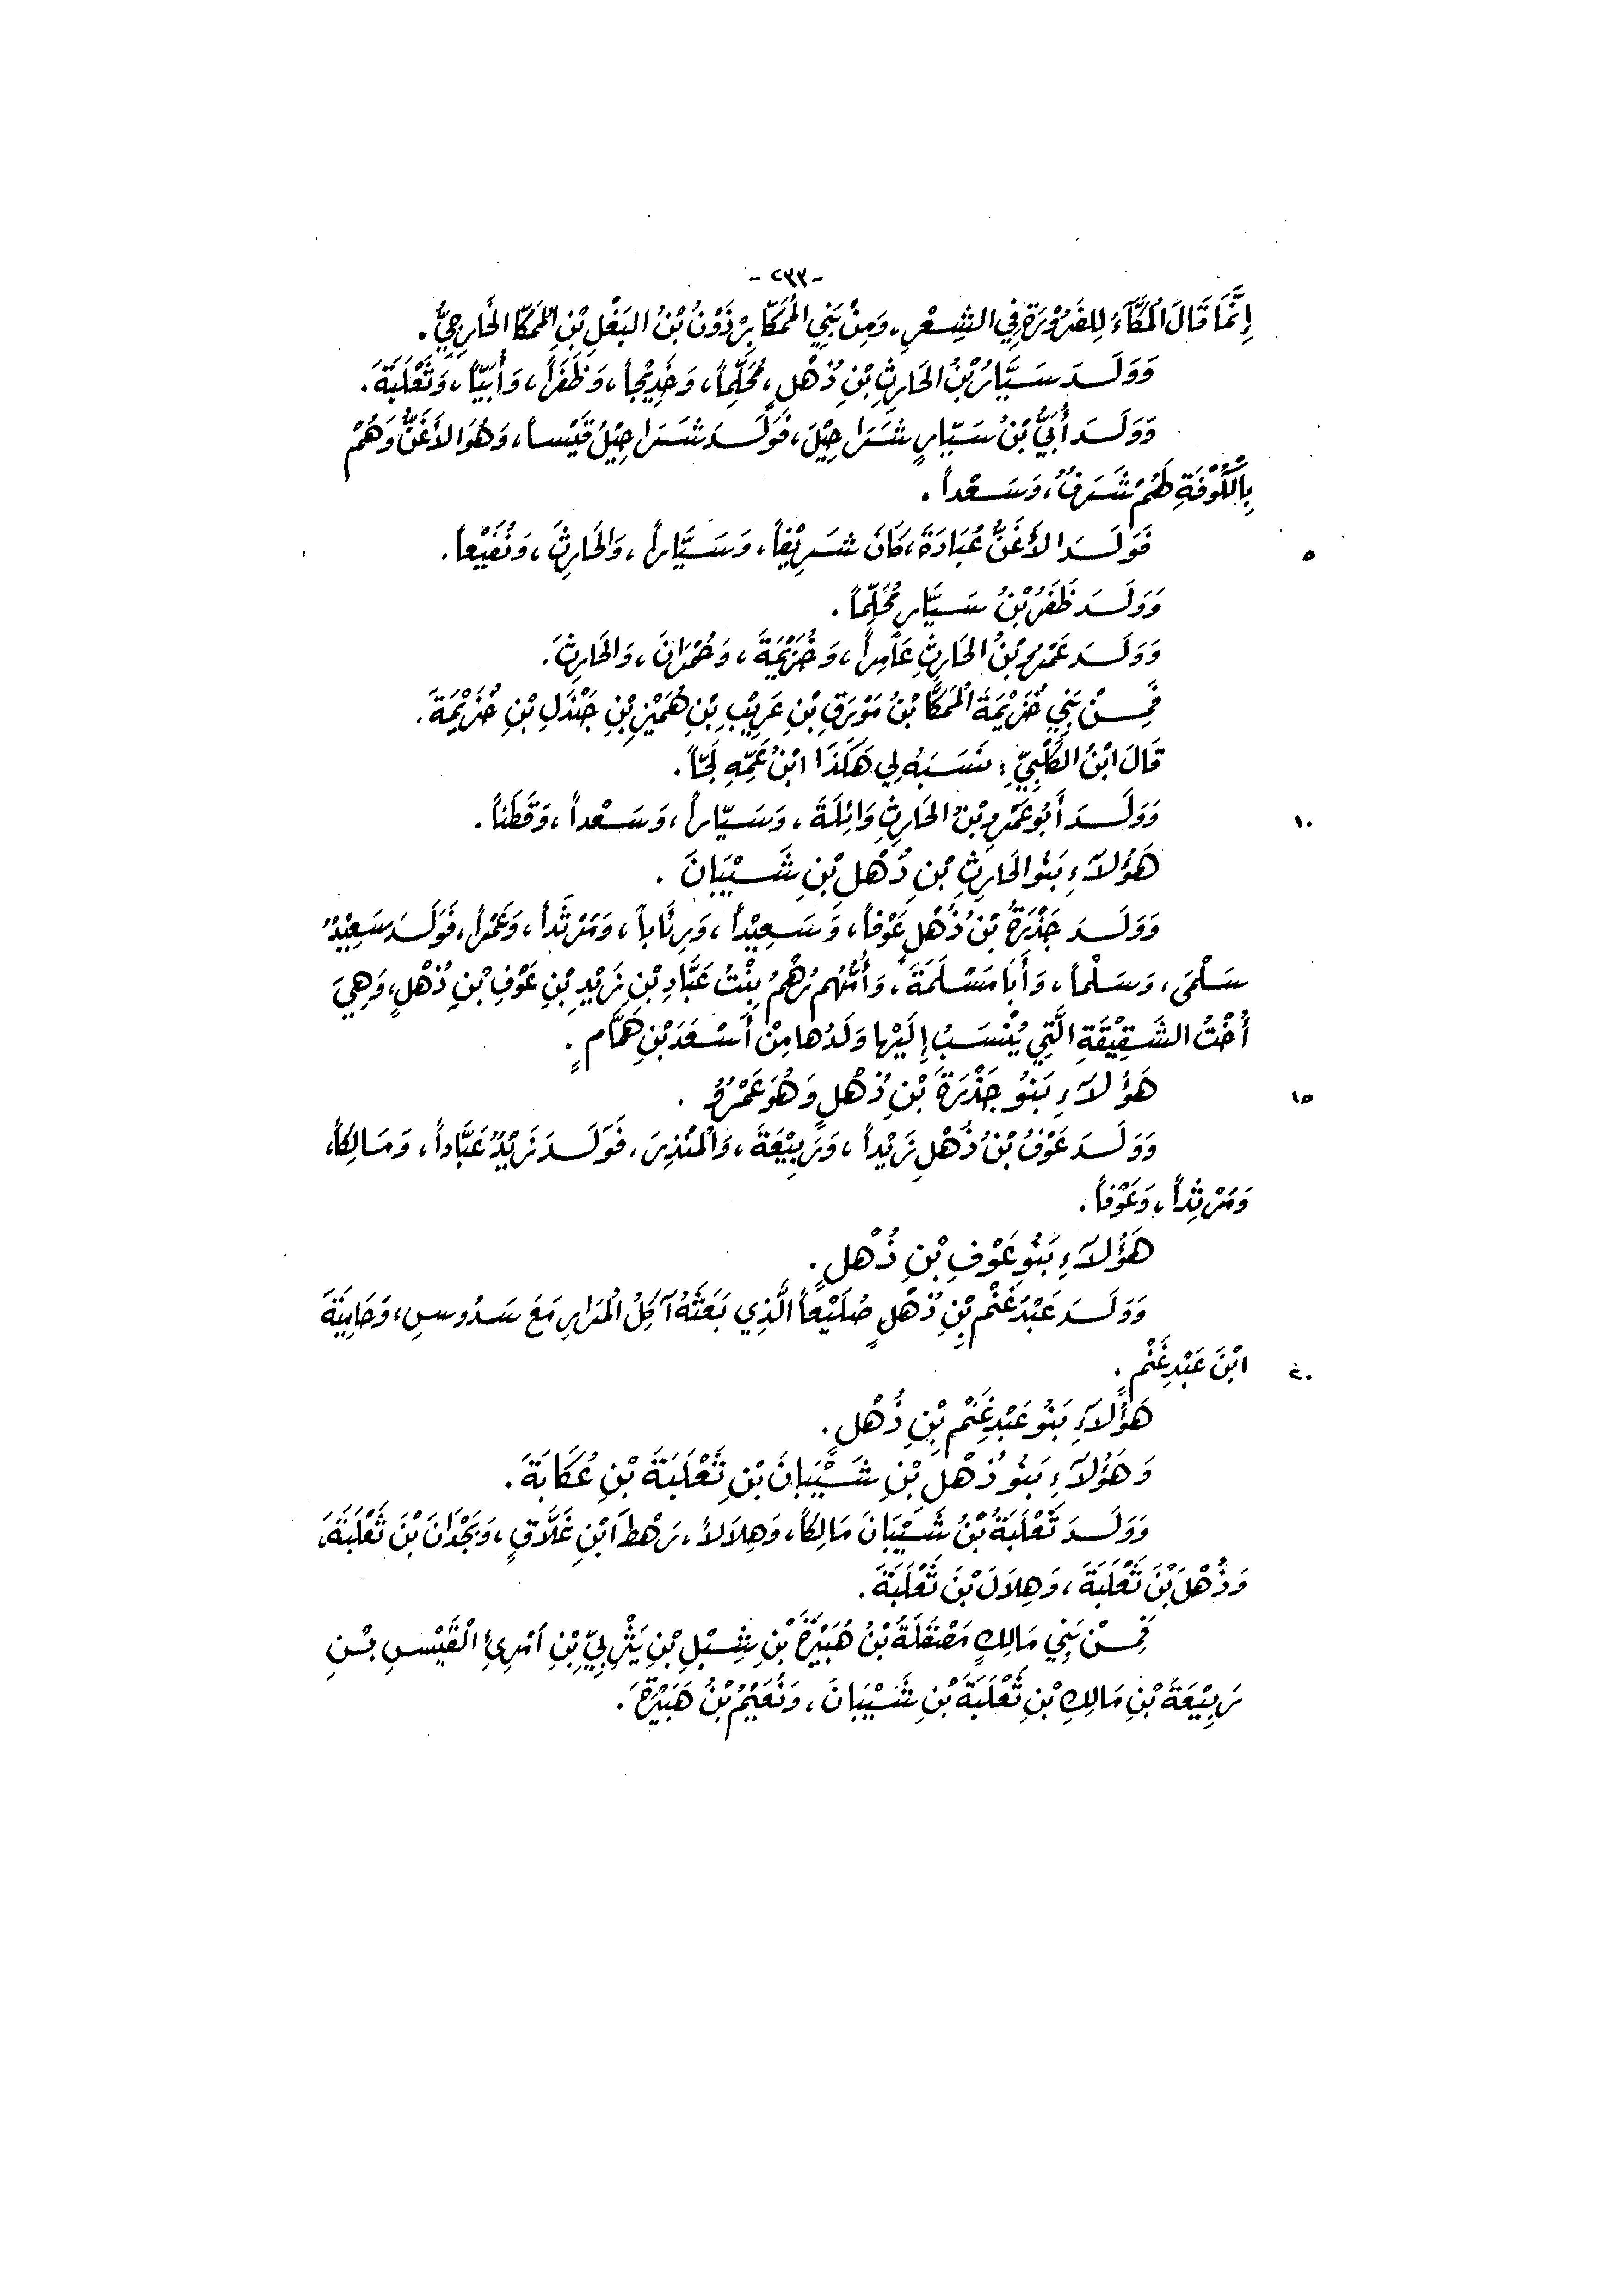 - ٢٣٣ -
إِنَّمَا قَالَ الْمُكَّاءُ لِلضَرُوْرَةِ فِي الشِّعْرِ، وَمِنْ بَنِي الْمُمَكَّا بِرْذَوْنُ بْنُ البَغْلِ بْنِ الْمُمَكَّا الخَارِجِيُّ.
وَوَلَدَ سَيَّارُ بْنُ الحَارِثِ بْنِ ذُهْلٍ، مُحَلِّماً، وَخَدِيْجاً، وَظَفَراً، وَأُبَيّاً، وَثَعْلَبَةَ.
وَوَلَدَ أُبَيُّ بْنُ سَيَّارٍ شَرَاحِيْلَ، فَوَلَدَ شَرَاحِيْلُ قَيْساً، وَهُوَ الأَغَرُّ وَهُمْ
بِالْكُوْفَةِ لَهُمْ شَرَفٌ، وَسَعْداً.
٥ فَوَلَدَ الأَغَرُّ عُبَادَةَ، كَانَ شَرِيْفاً، وَسَيَّاراً، وَالحَارِثَ، وَنُفَيْعاً.
وَوَلَدَ ظَفَرُ بْنُ سَيَّارٍ مُحَلِّماً.
وَوَلَدَ عَمْرُو بْنُ الحَارِثِ عَامِراً، وَخُزَيْمَةَ، وَحُمْرَانَ، وَالحَارِثَ.
فَمِنْ بَنِي خُزَيْمَةَ الْمُمَكَّا بْنُ مَوْرَقِ بْنِ عَرِيْبِ بْنِ هُمَيْزِ بْنِ جَنْدَلِ بْنِ خُزَيْمَةَ.
قَالَ ابْنُ الكَلْبِيِّ: نَسَبَهُ لِي هَكَذَا ابْنُ عَمِّهِ لَحّاً.
١٠ وَوَلَدَ أَبُو عَمْرِو بْنُ الحَارِثِ وَائِلَةَ، وَسَيَّاراً، وَسَعْداً، وَقَطَناً.
هَؤُلَاءِ بَنُو الحَارِثِ بْنِ ذُهْلِ بْنِ شَيْبَانَ.
وَوَلَدَ جَذْرَةُ بْنُ ذُهْلٍ عَوْفاً، وَسَعِيْداً، وَرِئَاباً، وَمَرْثَداً، وَعَمْراً، فَوَلَدَ سَعِيْدٌ
سَلْمَى، وَسَلْماً، وَأَبَا مَسْلَمَةَ، وَأُمُّهُم رُهْمُ بِنْتُ عَبَّادِ بْنِ زَيْدِ بْنِ عَوْفِ بْنِ ذُهْلٍ، وَهِيَ
أُخْتُ الشَّقِيْقَةِ الَّتِي يُنْسَبُ إِلَيْهَا وَلَدُهَا مِنْ أَسْعَدَ بْنِ هَمَّامٍ.
١٥ هَؤُلَاءِ بَنُو جَذْرَةَ بْنِ ذُهْلٍ وَهُوَ عَمْرٌو.
وَوَلَدَ عَوْفُ بْنُ ذُهْلٍ زَيْداً، وَرَبِيْعَةَ، وَالْمُنْذِرَ، فَوَلَدَ زَيْدٌ عَبَّاداً، وَمَالِكاً،
وَمَرْثِداً، وَعَوْفاً.
هَؤُلَاءِ بَنُو عَوْفِ بْنِ ذُهْلٍ.
وَوَلَدَ عَبْدُ غَنْمِ بْنِ ذُهْلٍ صُلَيْعاً الَّذِي بَعَثَهُ آكِلُ الْمُرَارِ مَعَ سَدُوسِ، وَحَابِيَةَ
٢٠ ابْنَ عَبْدِ غَنْمٍ.
هَؤُلَاءِ بَنُو عَبْدِ غَنْمِ بْنِ ذُهْلٍ.
وَهَؤُلَاءِ بَنُو ذُهْلِ بْنِ شَيْبَانَ بْنِ ثَعْلَبَةَ بْنِ عُكَابَةَ.
وَوَلَدَ ثَعْلَبَةُ بْنُ شَيْبَانَ مَالِكاً، وَهِلَالاً، رَهْطَ ابْنِ غَلَّاقٍ، وَبَجْدَانَ بْنَ ثَعْلَبَةَ،
وَذُهْلَ بْنَ ثَعْلَبَةَ، وَهِلَالَ بْنَ ثَعْلَبَةَ.
فَمِنْ بَنِي مَالِكٍ مَصْقَلَةُ بْنُ هُبَيْرَةَ بْنِ شِبْلِ بْنِ يَثْرِبِيِّ بْنِ امْرِئِ الْقَيْسِ بْنِ
رَبِيْعَةَ بْنِ مَالِكِ بْنِ ثَعْلَبَةَ بْنِ شَيْبَانَ، وَنُعَيْمُ بْنُ هُبَيْرَةَ.